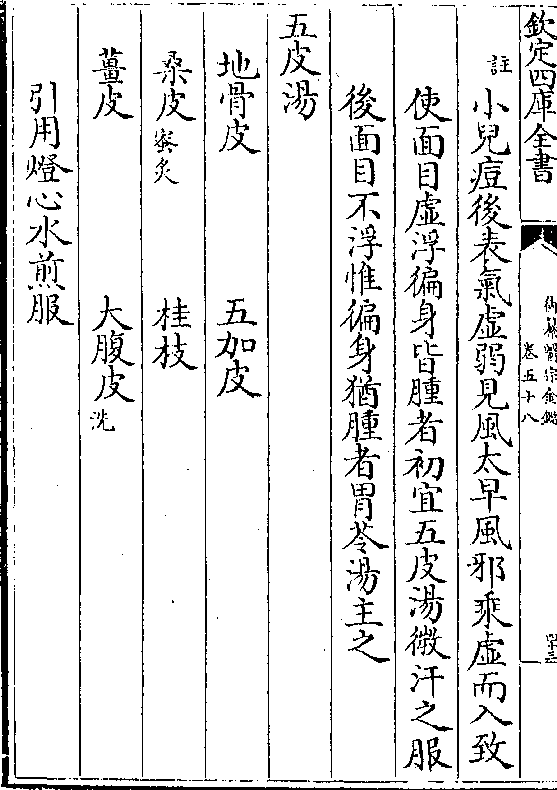 欽定四庫全書
御纂醫宗金鑑
卷五十八
四十三
註
小兒痘後表氣虛弱見風太早風邪乘虛而入致
使面目虛浮徧身皆腫者初宜五皮湯微汗之服
後面目不浮惟徧身猶腫者胃苓湯主之
五皮湯
地骨皮 五加皮
桑皮蜜炙 桂枝
薑皮 大腹皮洗
引用燈心水煎服